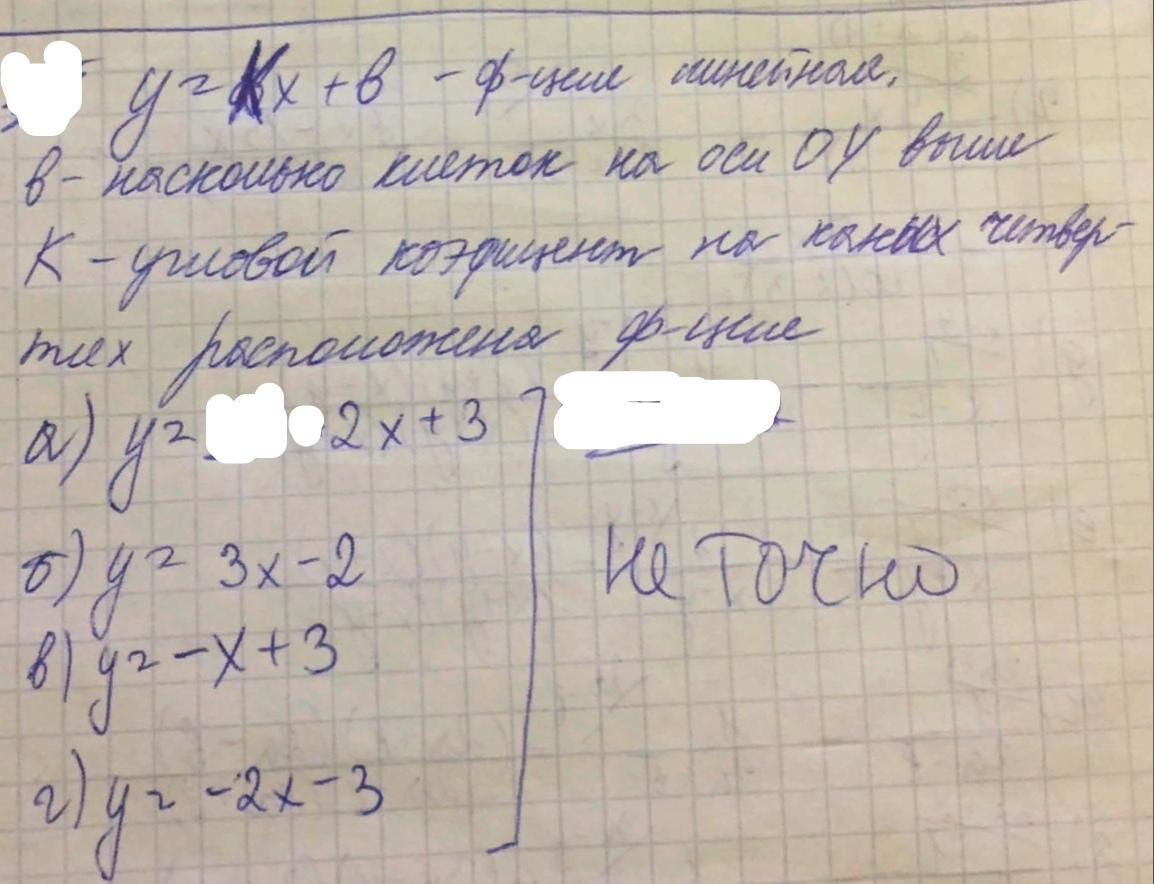 y = kx + в - ф-ция линейная.
в - насколько клеток на оси ОУ выше
К - угловой коэфицент на каких четвер-
тях расположена ф-ция
а) y = 2x + 3
б) y = 3x - 2
не точно
в) y = -x + 3
г) y = -2x - 3